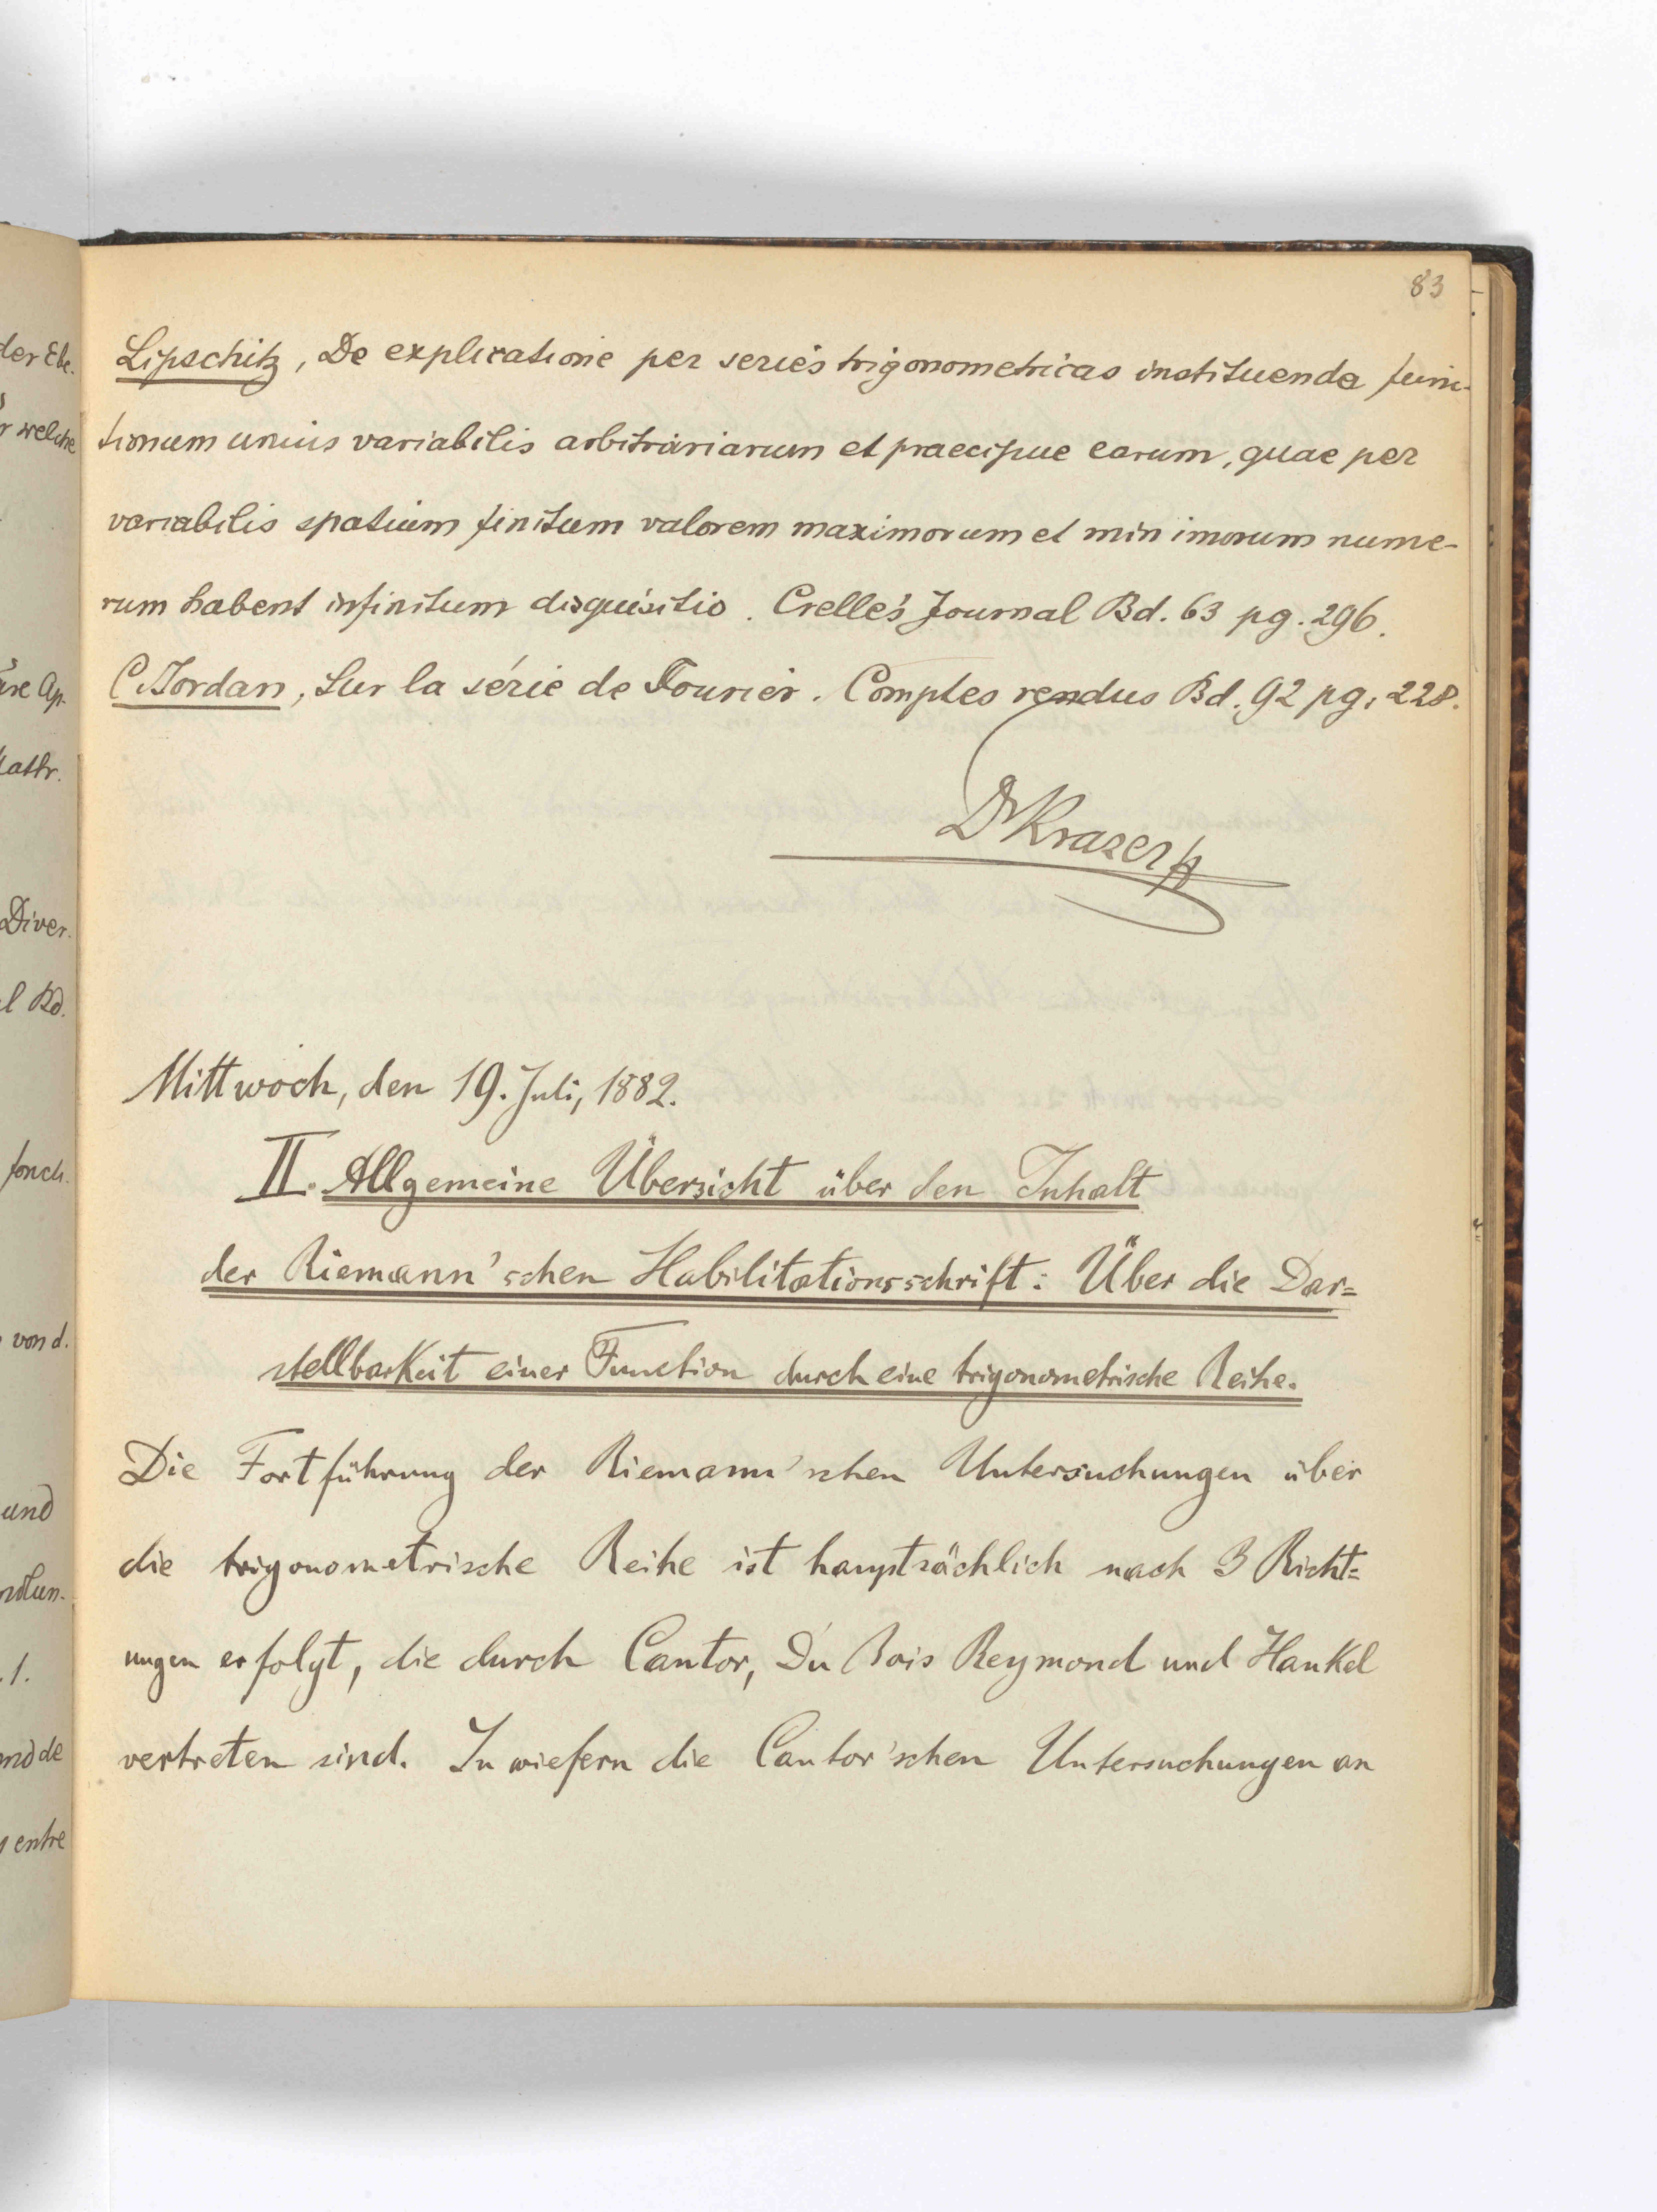 83
der Ebe.
r welche
Ap-
Diver.
l Bd.
von d.
und
.1.
entre
Lipschitz, De explicatione per series trigonometricas instituenda func-
tionum unius variabilis arbitrariarum et praecipue earum, quae per
variabilis spatium finitum valorem maximorum et minimorum nume-
rum habent infinitum disquisitio. Crelle's Journal Bd. 63 pg. 296.
C. Jordan, Sur la série de Fourier. Comptes rendus Bd. 92 pg. 228.
Dr Krazer
Mittwoch, den 19. Juli, 1882.
II. Allgemeine Übersicht über den Inhalt
der Riemann'schen Habilitationsschrift: Über die Dar=
stellbarkeit einer Function durch eine trigonometrische Reihe.
Die Fortführung der Riemann'schen Untersuchungen über
die trigonometrische Reihe ist hauptsächlich nach 3 Richt=
ungen erfolgt, die durch Cantor, Du Bois Reymond und Hankel
vertreten sind. In wiefern die Cantor'schen Untersuchungen an